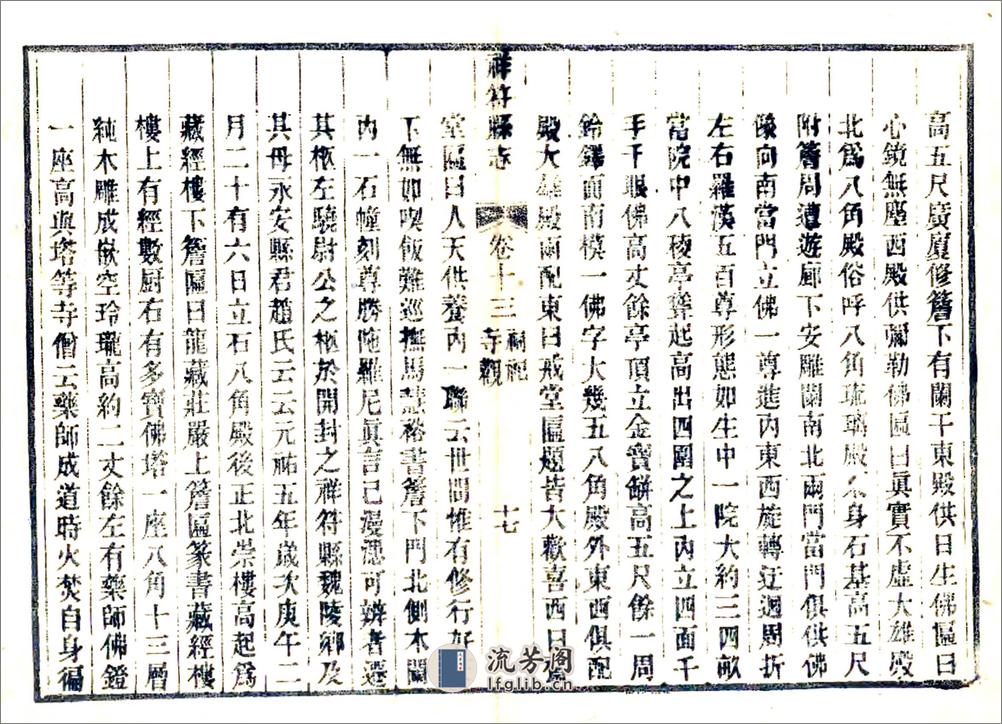 高五尺廣廈修簷下有闌干東殿供日生佛匾曰
心鏡無塵西殿供彌勒佛匾曰眞實不虛大雄殿
北爲八角殿俗呼八角琉璃殿 身石基高五尺
附簷周遭遊廊下安雕闌南北兩門當門俱供佛
像向南當門立佛一尊進內東西旋轉迂迴周折
左右羅漢五百尊形態如生中一院大約三四畝
當院中八稜亭聳起高出四圍之上內立四面千
手千眼佛高丈餘亭頂立金寶缾高五尺餘一周
鈴鐸面南模一佛字大幾五八角殿外東西俱配
殿大雄殿兩配東曰戒堂匾題皆大歡喜西曰齋
祥符縣志
卷十三
祠祀
寺觀
十七
堂匾曰人天供養內一聯云世間惟有修行好天
下無如喫飯難巡撫馬慧裕書簷下門北側木闌
內一石幢刻尊勝陁羅尼眞言已漫漶可辨者遷
其柩左驍尉公之柩於開封之祥符縣魏陵鄉及
其母永安縣君趙氏云云元祐五年歲次庚午二
月二十有六日立石八角殿後正北崇樓高起爲
藏經樓下簷匾曰龍藏莊嚴上簷匾篆書藏經樓
樓上有經數厨右有多寶佛塔一座八角十三層
純木雕成嵌空玲瓏高約二丈餘左有藥師佛鐙
一座高與塔等寺僧云藥師成道時火焚自身徧
流芳阁
lfglib.cn